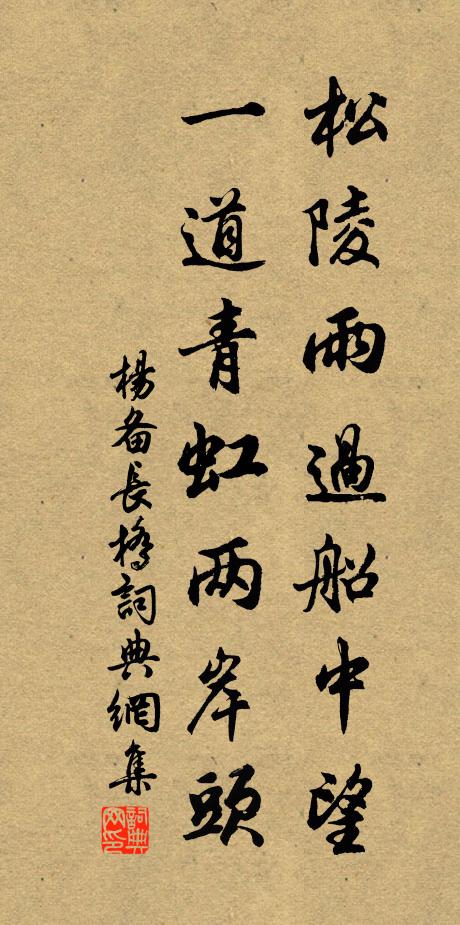 松陵雨過船中望
一道青虹两岸頭
楊备長橋詞典網集
詞典網印